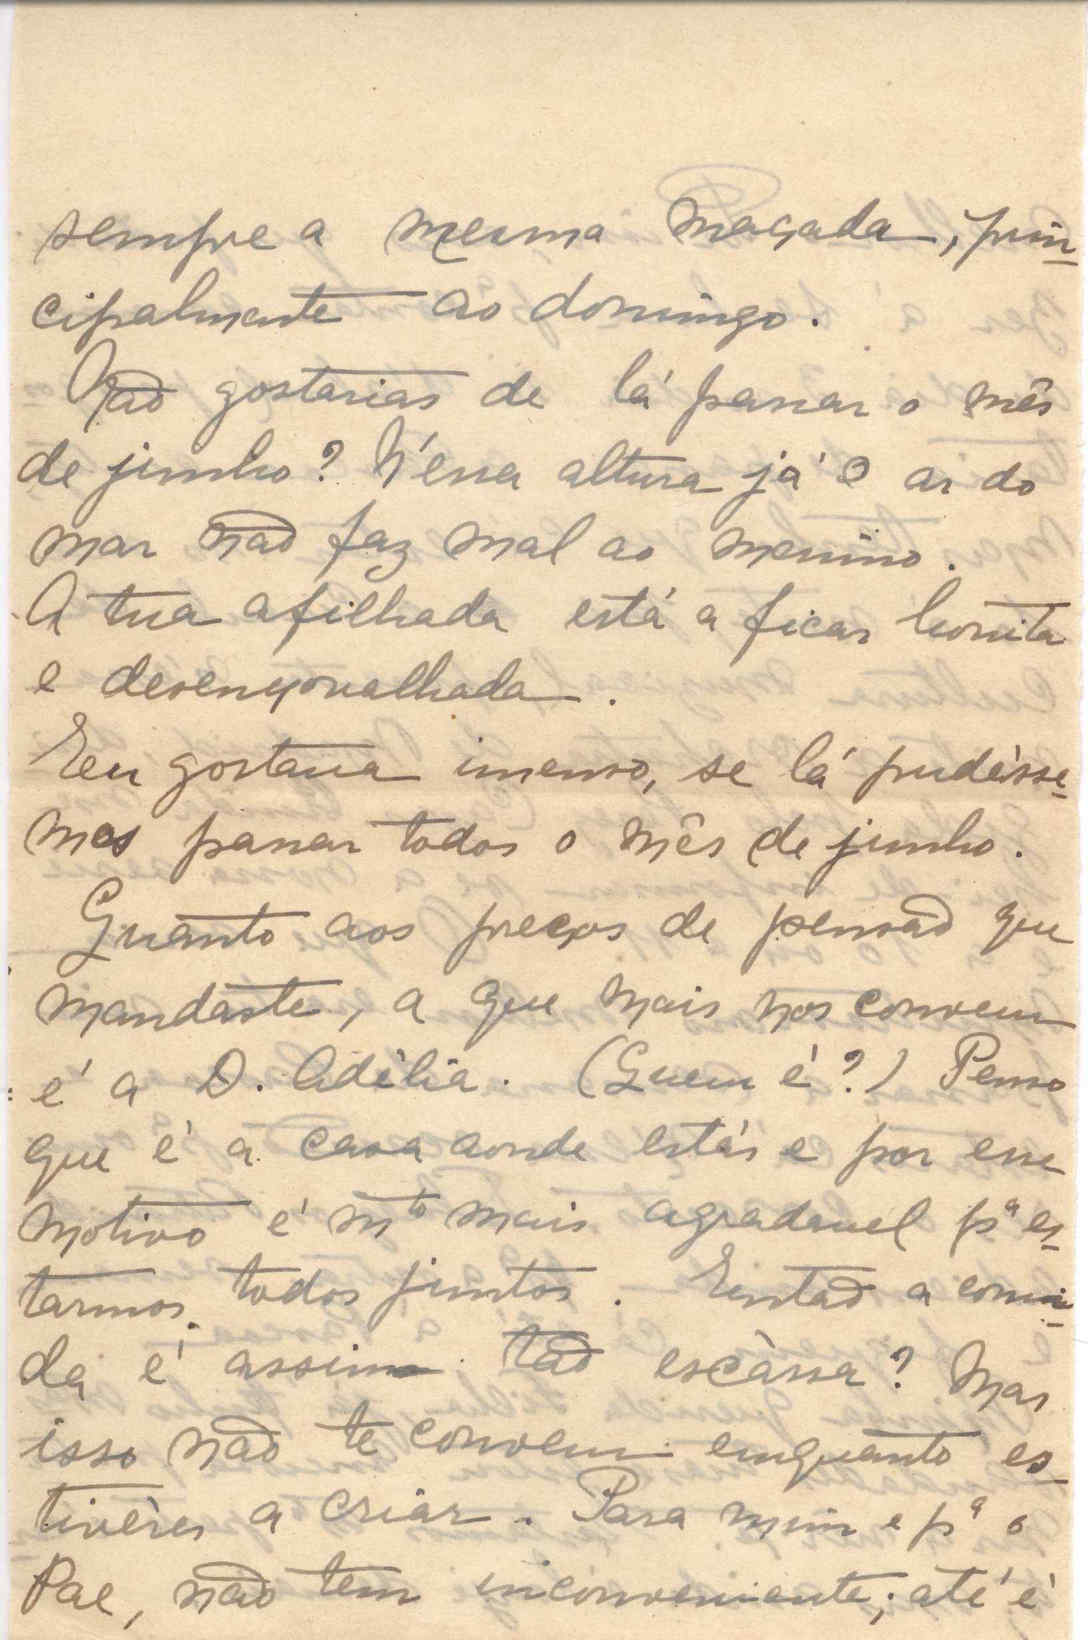 sempre a mesma maçada, prin-
cipalmente ao domingo.
Não gostarias de lá passar o mês
de junho? N'essa altura já o ar do
mar não faz mal ao menino.
A tua afilhada está a ficar bonita
e desengovalhada.
Eeu gostava imenso, se lá pudèsse-
mos passar todos o mês de junho.
Quanto aos preços de pensão que
mandaste, a que mais nos convem
é a D. Adèlia. (Quem é?) Penso
que é a casa aonde estás e por esse
motivo é mto mais agradavel pa es-
tarmos todos juntos. Entao a comi-
da é assim tão escàssa? Mas
isso não te convem emquanto es-
tivères a criar. Para mim e pa o
Pae, não tem inconveniente; até é